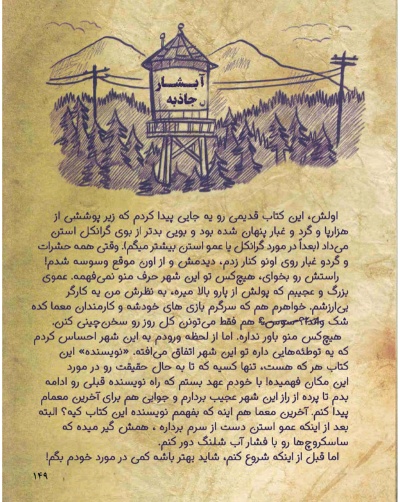 آبشار
جاذبه
اولش، این کتاب قدیمی رو یه جایی پیدا کردم که زیر پوششی از
هزارپا و گرد و غبار پنهان شده بود و بویی بدتر از بوی گرانکل استن
می‌داد (بعداً در مورد گرانکل یا عمو استن بیشتر میگم). وقتی همه حشرات
و گردو غبار روی اونو کنار زدم، دیدمش و از اون موقع وسوسه شدم!
راستش رو بخوای، هیچ‌کس تو این شهر حرف منو نمی‌فهمه. عموی
بزرگ و عجیبم که پولش از پارو بالا میره، به نظرش من یه کارگر
بی‌ارزشم. خواهرم هم که سرگرم بازی های خودشه و کارمندان معما کده
شک واندا؟ سوس؟ هم فقط می‌تونن کل روز رو سخن‌چینی کنن.
هیچ‌کس منو باور نداره. اما از لحظه ورودم به این شهر احساس کردم
که یه توطئه‌هایی داره تو این شهر اتفاق می‌افته. «نویسنده» این
کتاب هر که هست، تنها کسیه که تا به حال حقیقت رو در مورد
این مکان فهمیده! با خودم عهد بستم که راه نویسنده قبلی رو ادامه
بدم تا پرده از راز این شهر عجیب بردارم و جوابی هم برای آخرین معمام
پیدا کنم. آخرین معما هم اینه که بفهمم نویسنده این کتاب کیه؟ البته
بعد از اینکه عمو استن دست از سرم برداره ، همش گیر میده که
ساسکروچ‌ها رو با فشار آب شلنگ دور کنم.
اما قبل از اینکه شروع کنم، شاید بهتر باشه کمی در مورد خودم بگم!
۱۴۹